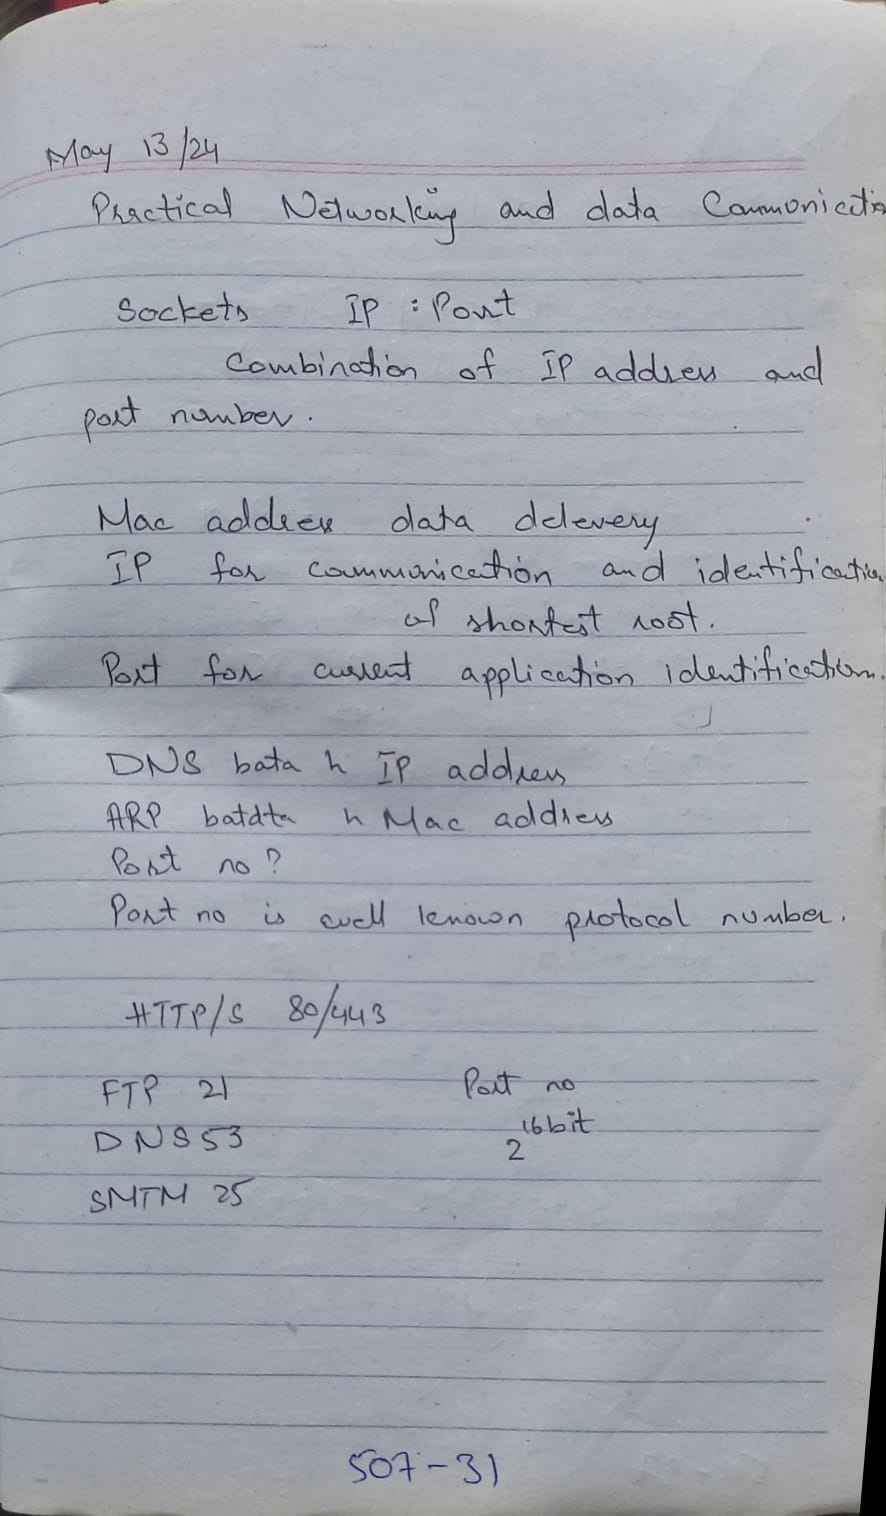 May 13/24
Practical Networking and data Commonicatio
Sockets IP : Port
Combination of IP address and
port number.
Mac address data delevery
IP for commonication and identification
of shortest root.
Port for current application identification.
DNS bata h IP address
ARP batata h Mac address
Port no?
Port no is well known protocol number.
HTTP/S 80/443
FTP 21 Port no
DNS 53 2 16 bit
SMTM 25
507-31